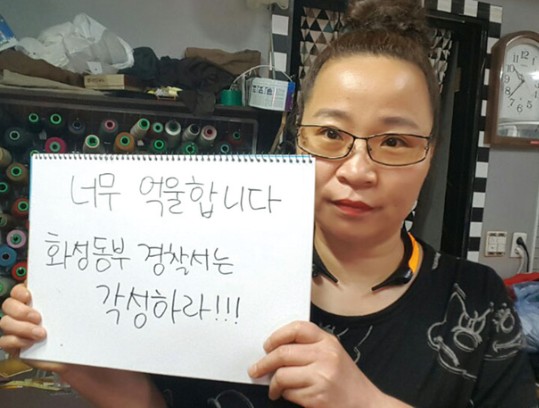 너무 억울합니다
화성동부 경찰서는
각성하라!!!